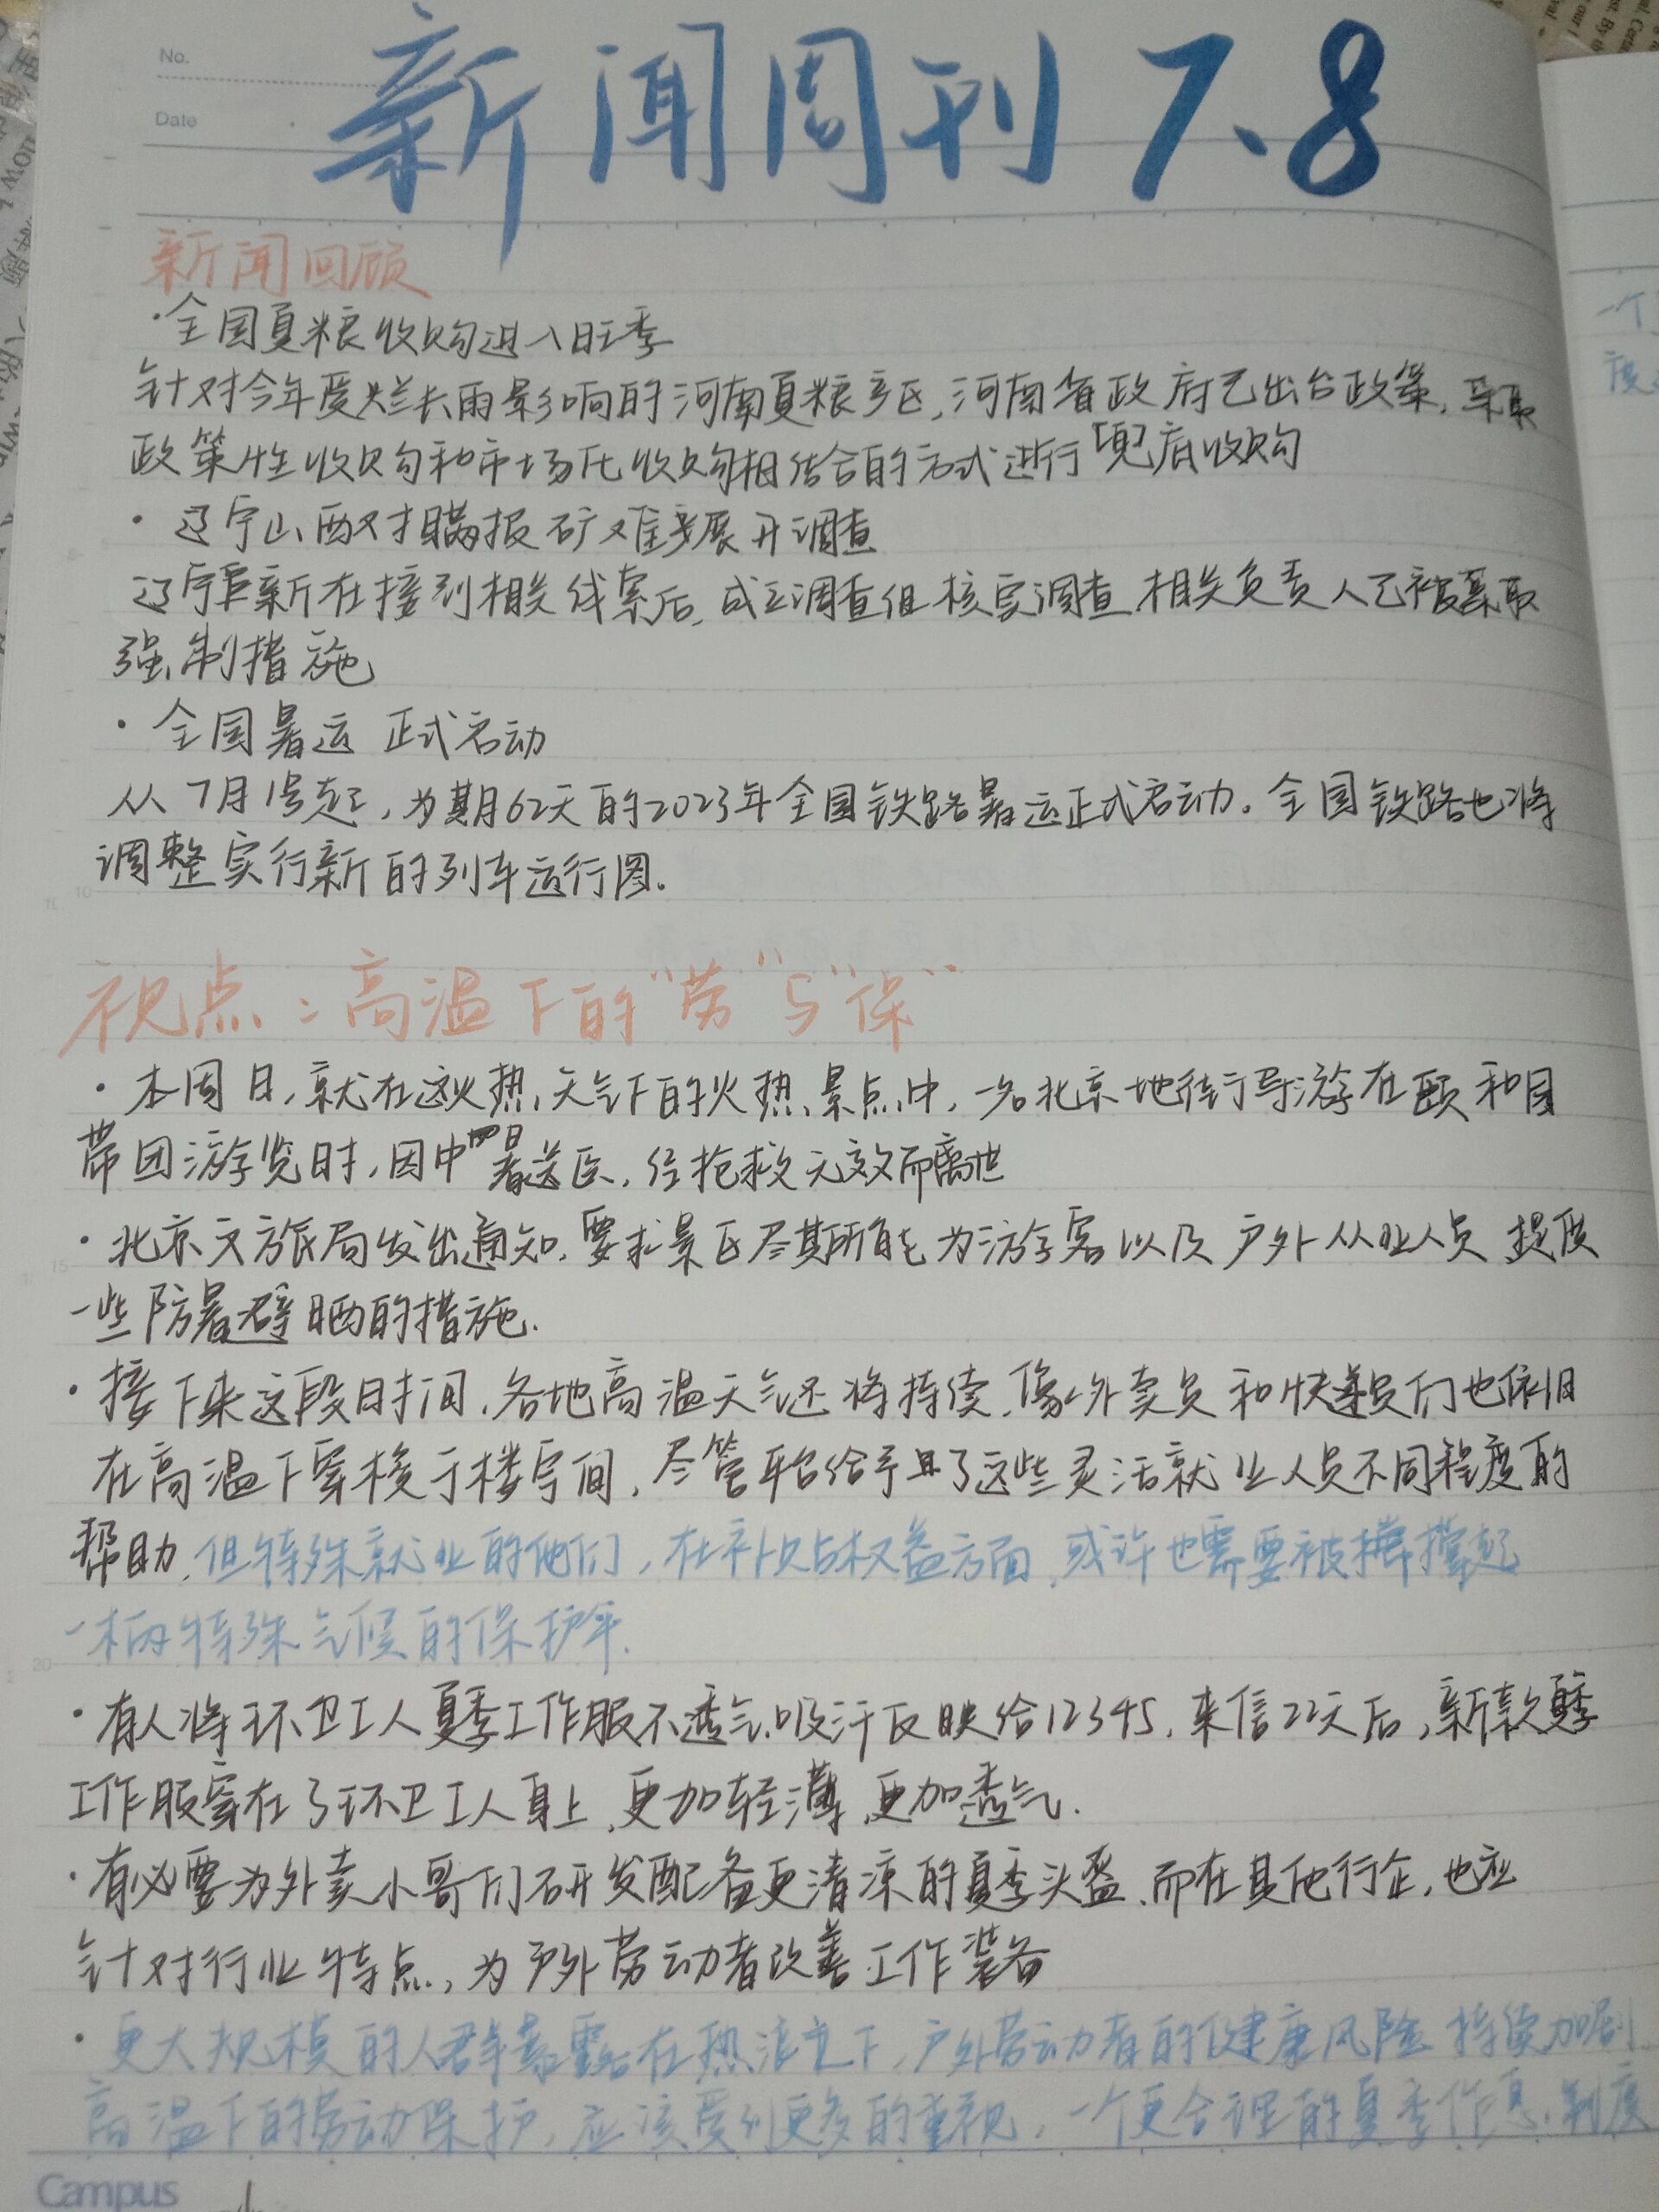 No.
Date
新闻周刊 7、8
新闻回顾
·全国夏粮收购进入旺季
针对今年受烂长雨影响的河南夏粮产区,河南省政府已出台政策,采取
政策性收购和市场化收购相结合的方式进行「兜」底收购
·辽宁山西对瞒报矿难展开调查
辽宁阜新在接到相关线索后,成立调查组核实调查,相关负责人已被采取
强制措施
·全国暑运 正式启动
从7月1号起,为期62天的2023年全国铁路暑运正式启动。全国铁路也将
调整实行新的列车运行图.
视点:高温下的“劳”与“保”
·本周日,就在这火热天气下的火热景点中,一名北京地待行导游在颐和园
带团游览时,因中暑送医,经抢救无效而离世
·北京文旅局发出通知,要求景区尽其所能为游客以及户外从业人员提供
一些防暑避晒的措施.
·接下来这段时间,各地高温天气还将持续,像外卖员和快递员们也依旧
在高温下穿梭于楼宇间,尽管平台给予了这些灵活就业人员不同程度的
帮助,但特殊就业的他们,在补贴权益方面,或许也需要被撑起
一柄特殊气候的保护伞.
·有人将环卫工人夏季工作服不透气、吸汗反映给12345,来信22天后,新款夏季
工作服穿在了环卫工人身上,更加轻薄,更加透气.
·有必要为外卖小哥们研发配备更清凉的夏季头盔,而在其他行企,也应
针对行业特点,为户外劳动者改善工作装备
·更大规模的人群暴露在热浪之下,户外劳动者的健康风险持续加剧
高温下的劳动保护,应该受到更多的重视,一个更合理的夏季作息制度
Campus